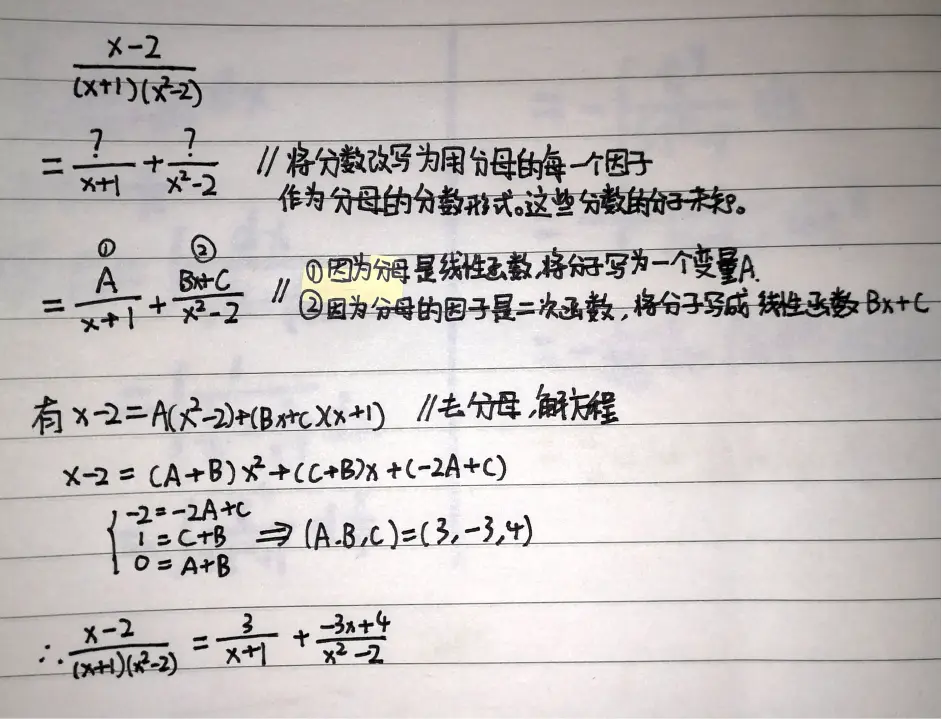 x-2
(x+1)(x²-2)
= ?/(x+1) + ?/(x²-2) // 将分数改写为用分母的每一个因子
作为分母的分数形式。这些分数的分子未知。
① ②
= A/(x+1) + (Bx+C)/(x²-2) // ①因为分母是线性函数,将分子写为一个变量A.
②因为分母的因子是二次函数,将分子写成线性函数Bx+C
有 x-2=A(x²-2)+(Bx+C)(x+1) //去分母,解方程
x-2=(A+B)x²+(C+B)x+(-2A+C)
-2=-2A+C
1=C+B ⇒ (A.B,C)=(3,-3,4)
0=A+B
∴ (x-2)/((x+1)(x²-2)) = 3/(x+1) + (-3x+4)/(x²-2)